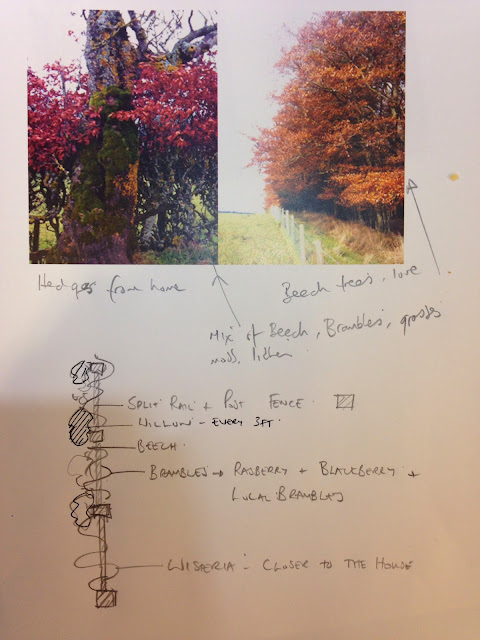 Hedges from home
Beech trees, love
Mix of Beech, Brambles, grasses
moss, lichen
SPLIT RAIL + POST FENCE.
WILLOW - EVERY 3FT.
BEECH.
BRAMBLES → RASBERRY + BLACKBERRY +
LOCAL BRAMBLES
WISTERIA - CLOSER TO THE HOUSE